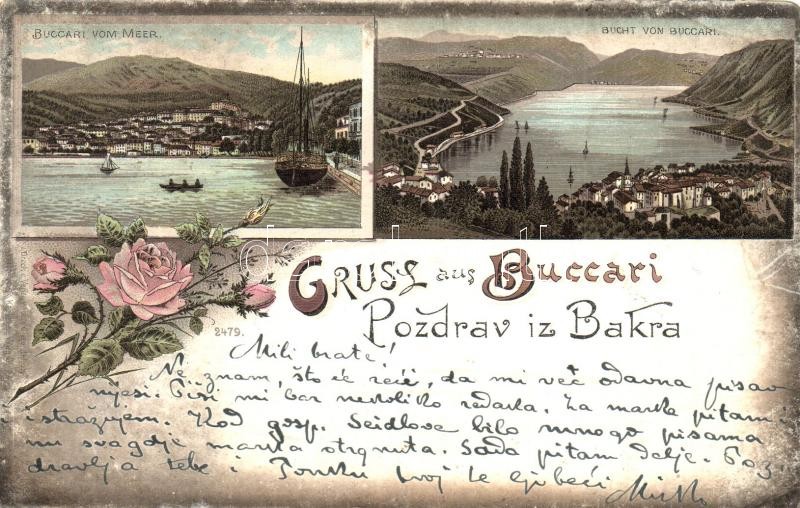 BUCCARI VOM MEER.
BUCHT VON BUCCARI.
GRUSS aus Buccari
Pozdrav iz Bakra
2479.
Mili brate!
Ne znam, što će reći, da mi već odavna pisao
njesi. Piši mi bar nekoliko redaka. Za marke pitam i
istražujem. Kod gosp. Seidlove bilo mnogo pisama
nu svagdje marka otrgnuta. Sada pitam dalje. Poz
dravlja tebe i Tonku tvoj te ljubeći
Mirko